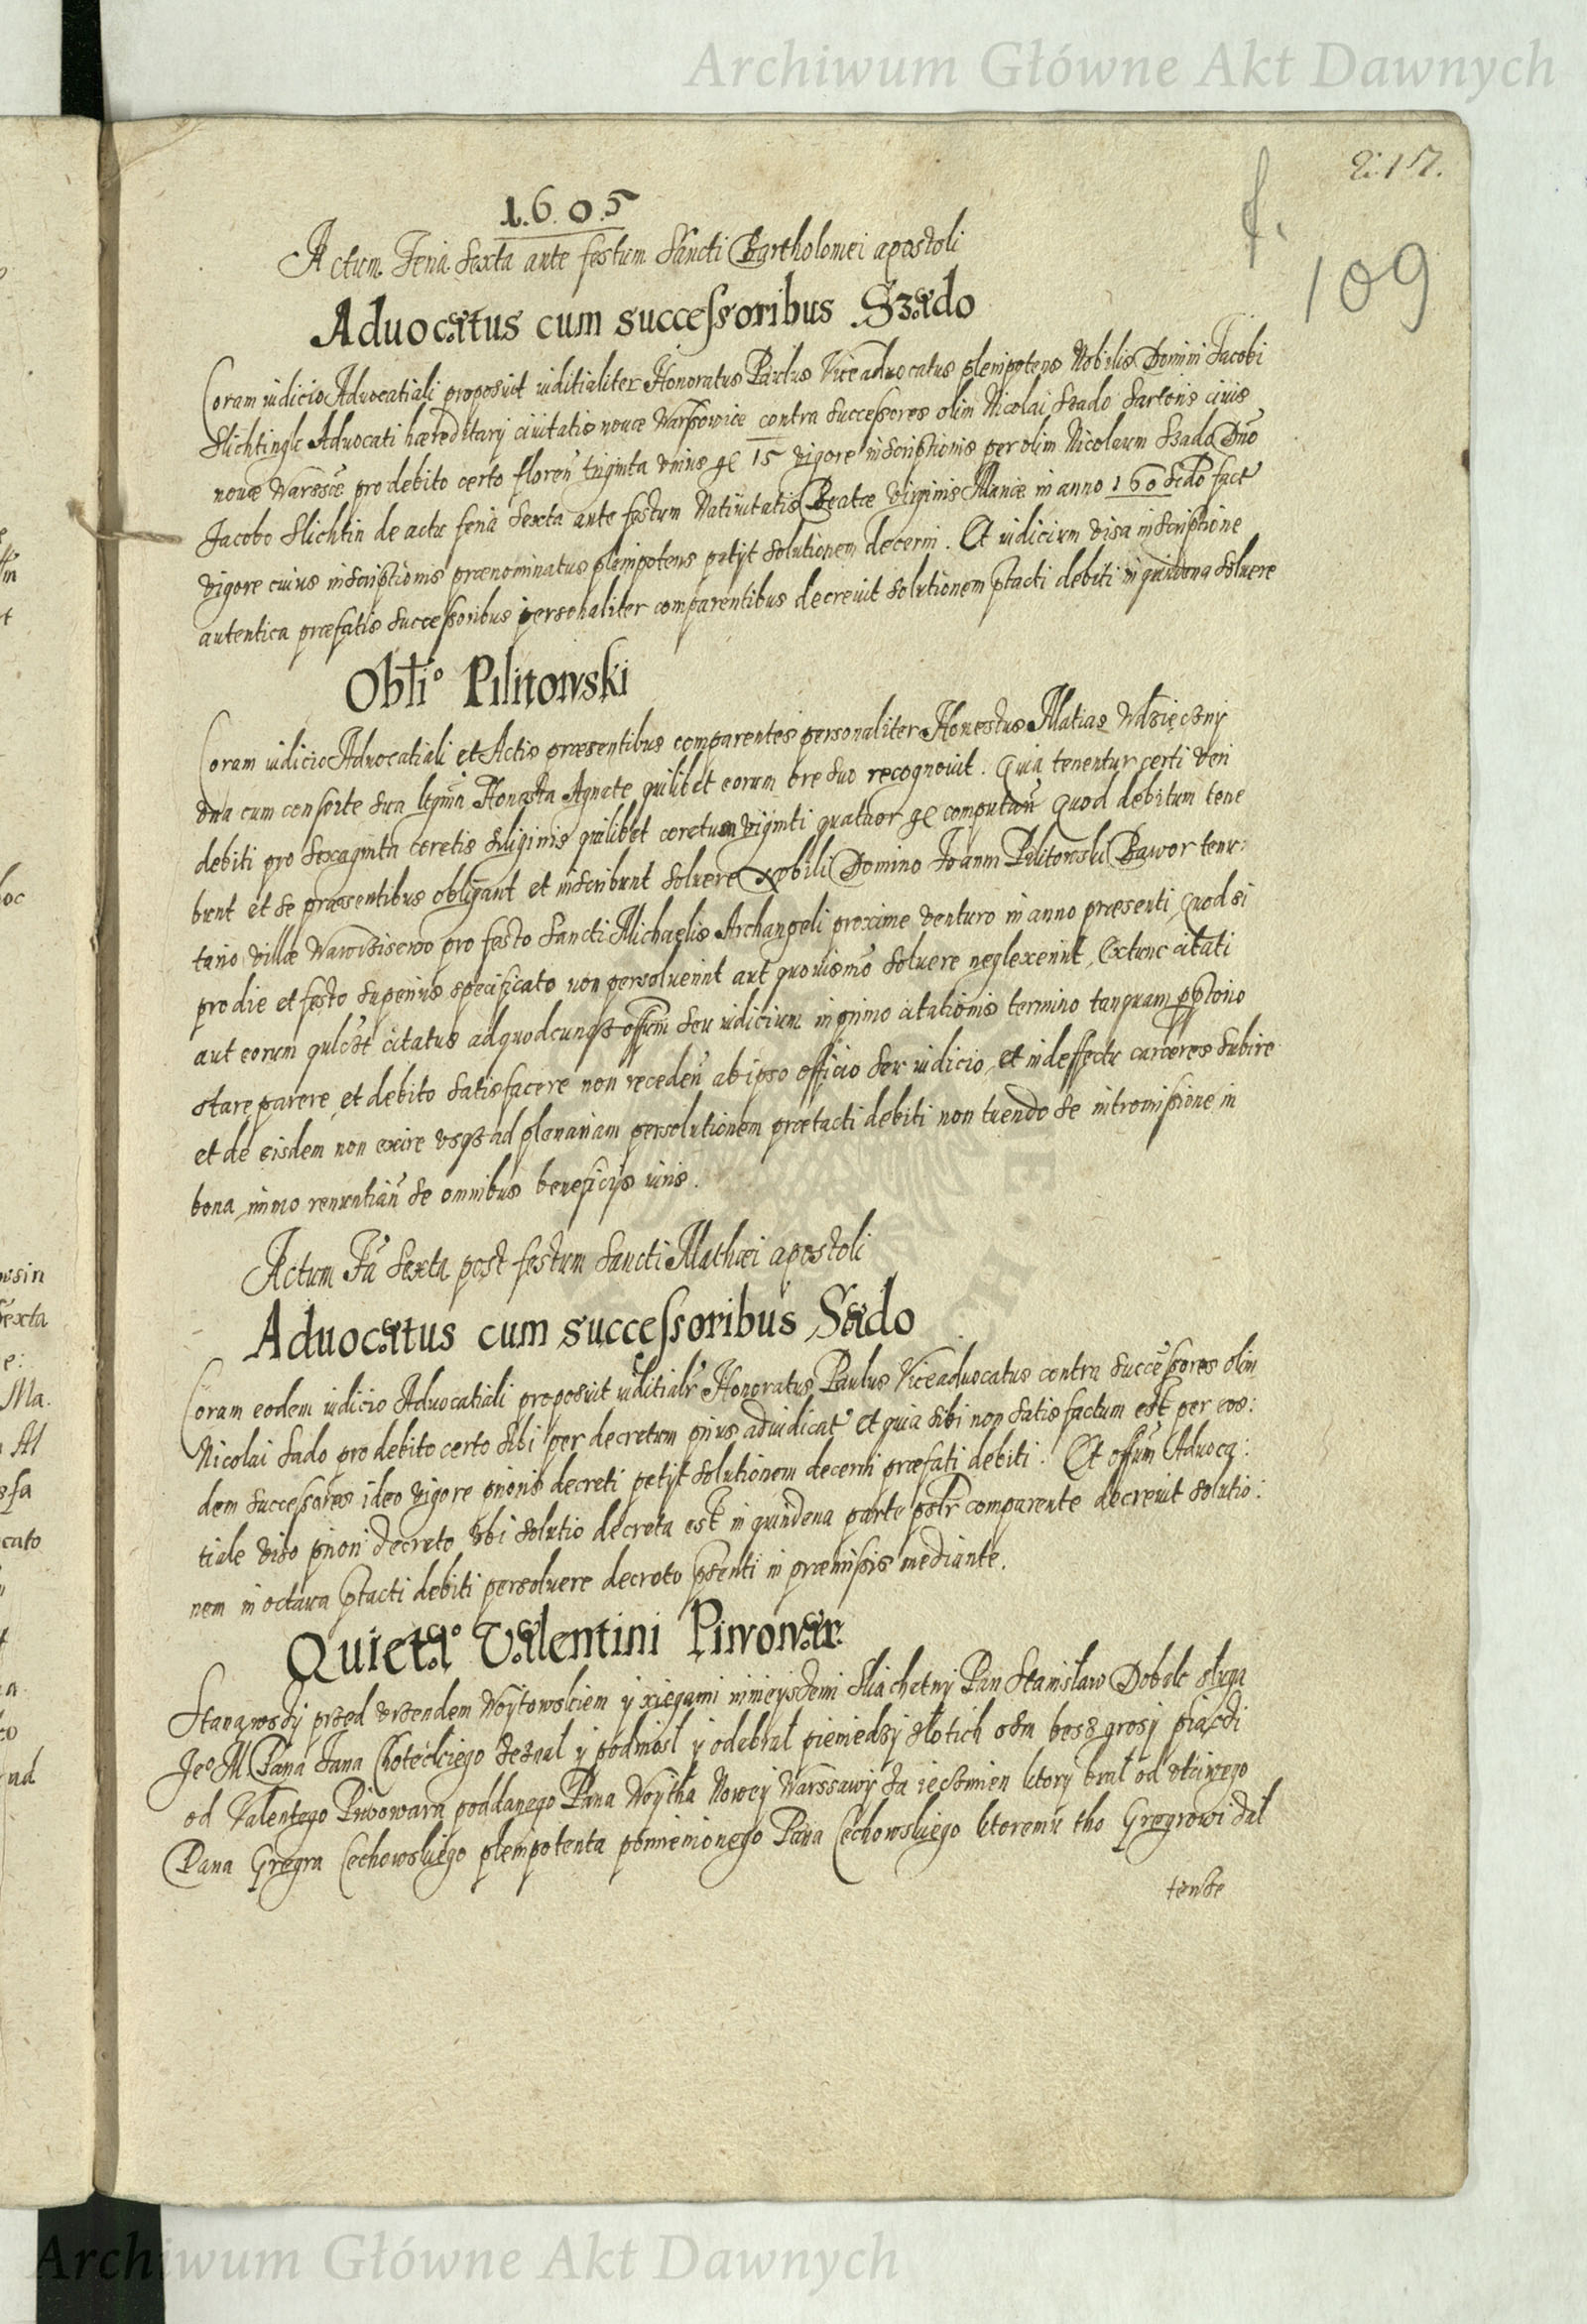 Archiwum Główne Akt Dawnych
217.
f.
109
1.6.0.5
Actum Feria Sexta ante festum Sancti Bartholomei apostoli
Aduocatus cum successoribus Szado
Coram iudicio Aduocatiali proposuit iuditialiter Honoratus Paulus Viceaduocatus plenipotens Nobilis Domini Jacobi
Slichtingk Aduocati hæreditarij ciuitatis nouæ Warssowiæ contra Successores olim Nicolai Szado Sartoris ciuis
nouæ Warssæ pro debito certo floren triginta vnius gr 15 vigore inscriptionis per olim Nicolaum Szado Dno
Jacobo Slichtin de actu feria Sexta ante festum Natiuitatis Beatæ Virginis Mariæ in anno 160 fact
vigore cuius inscriptionis prænominatus plenipotens petijt Solutionem decerni. Et iudicium visa inscriptione
autentica præfatis Successoribus personaliter comparentibus decreuit Solutionem ptacti debiti in quindena Soluere
Oblio Pilitowski
Coram iudicio Aduocatiali et Actis præsentibus comparentes personaliter Honestus Matias Wdzięczny
vna cum consorte sua ltgma Honesta Agnete quilibet eorum ore suo recognouit. Quia tenentur certi veri
debiti pro Sexaginta coretis Siliginis quilibet coretum viginti quatuor gr computan Quod debitum tene
bunt et se præsentibus obligant et inscribunt Soluere Nobili Domino Joanni Pilitowski Bawor tenu:
tario villæ Wawrziszewo pro festo Sancti Michaelis Archangeli proxime venturo in anno præsenti, Quod si
pro die et festo superius specificato non persoluerint aut quouismo Soluere neglexerint, Extunc citati
aut eorum qulbt citatus ad quodcunqz offum seu iudicium in primo citationis termino tanquam pptorio
stare parere, et debito satisfacere non receden ab ipso officio seu iudicio, et in deffectu carceres Subire
et de eisdem non exire vsqz ad plenariam persolutionem prætacti debiti non tuendo se intromissione in
bona, immo renuntian de omnibus beneficijs iuris.
Actum Fa Sexta post festum Sancti Mathæi apostoli
Aduocatus cum successoribus Sado
Coram eodem iudicio Aduocatiali proposuit iuditialr Honoratus Paulus Viceaduocatus contra Successores olim
Nicolai Sado pro debito certo sibi per decretum prius adiudicat Et quia sibi non satisfactum est per eos:
dem Successores ideo vigore prioris decreti petijt Solutionem decerni præfati debiti. Et offum Aduoca:
tiale viso priori decreto vbi Solutio decreta est in quindena parte pslr comparente decreuit Solutio:
nem in octaua ptacti debiti persoluere decreto psenti in præmissis mediante.
Quietao Valentini Piwowar
Stanąwszy przed vrzendem Woytowskiem y xięgami ninieyszemi Sliachetny Pan Stanislaw Dobek sługa
Jeo M Pana Jana Choteckiego zeznal y podniosl y odebral pieniedzy złotich osm bosz grosy piaczi
od Valentego Piwowara poddanego Pana Woytha Nowey Warssawy za ieczmien ktory bral od vtciwego
Pana Gregra Cechowskiego plenipotenta pomienionego Pana Cechowskiego ktoremu tho Gregrowi dal
tensze
Archiwum Główne Akt Dawnych